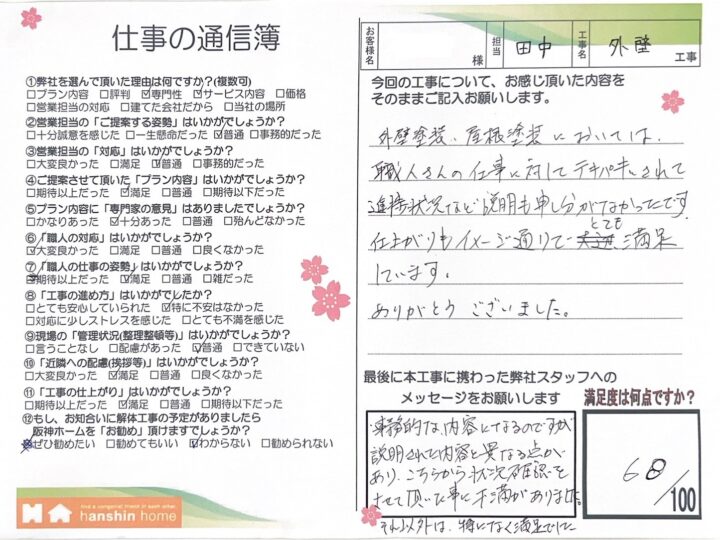 仕事の通信簿
①弊社を選んで頂いた理由は何ですか?(複数可)
□プラン内容 □評判 ☑専門性 ☑サービス内容 □価格
□営業担当の対応 □建てた会社だから □当社の場所
②営業担当の「ご提案する姿勢」はいかがでしょうか?
□十分誠意を感じた □一生懸命だった ☑普通 □事務的だった
③営業担当の「対応」はいかがでしょうか?
□大変良かった □満足 ☑普通 □事務的だった
④ご提案させて頂いた「プラン内容」はいかがでしょうか?
□期待以上だった ☑満足 □普通 □期待以下だった
⑤プラン内容に「専門家の意見」はありましたでしょうか?
□かなりあった ☑十分あった □普通 □殆んどなかった
⑥「職人の対応」はいかがでしょうか?
☑大変良かった □満足 □普通 □良くなかった
⑦「職人の仕事の姿勢」はいかがでしょうか?
□期待以上だった ☑満足 □普通 □雑だった
⑧「工事の進め方」はいかがでしたか?
□とても安心していられた ☑特に不安はなかった
□対応に少しストレスを感じた □とても不満を感じた
⑨現場の「管理状況(整理整頓等)」はいかがでしょうか?
□言うことなし □配慮があった ☑普通 □できていない
⑩「近隣への配慮(挨拶等)」はいかがでしょうか?
□大変良かった ☑満足 □普通 □良くなかった
⑪「工事の仕上がり」はいかがでしょうか?
□期待以上だった ☑満足 □普通 □期待以下だった
⑫もし、お知合いに解体工事の予定がありましたら
阪神ホームを「お勧め」頂けますでしょうか?
ぜひ勧めたい □勧めてもいい ☑わからない □勧められない
find a congenial friend in each other.
hanshin home
お客様名 様 担当 田中 工事名 外壁 工事
今回の工事について、お感じ頂いた内容を
そのままご記入お願いします。
外壁塗装、屋根塗装においては、
職人さんの仕事に対してテキパキとされて
進捗状況など説明も申し分がなかったです。
仕上がりもイメージ通りでとても満足
しています。
ありがとうございました。
最後に本工事に携わった弊社スタッフへの
メッセージをお願いします
事務的な内容になるのですが
説明された内容と異なる点が
あり、こちらから状況確認を
させて頂いた事に不満がありました。
それ以外は、特になく満足でした
満足度は何点ですか?
68/100